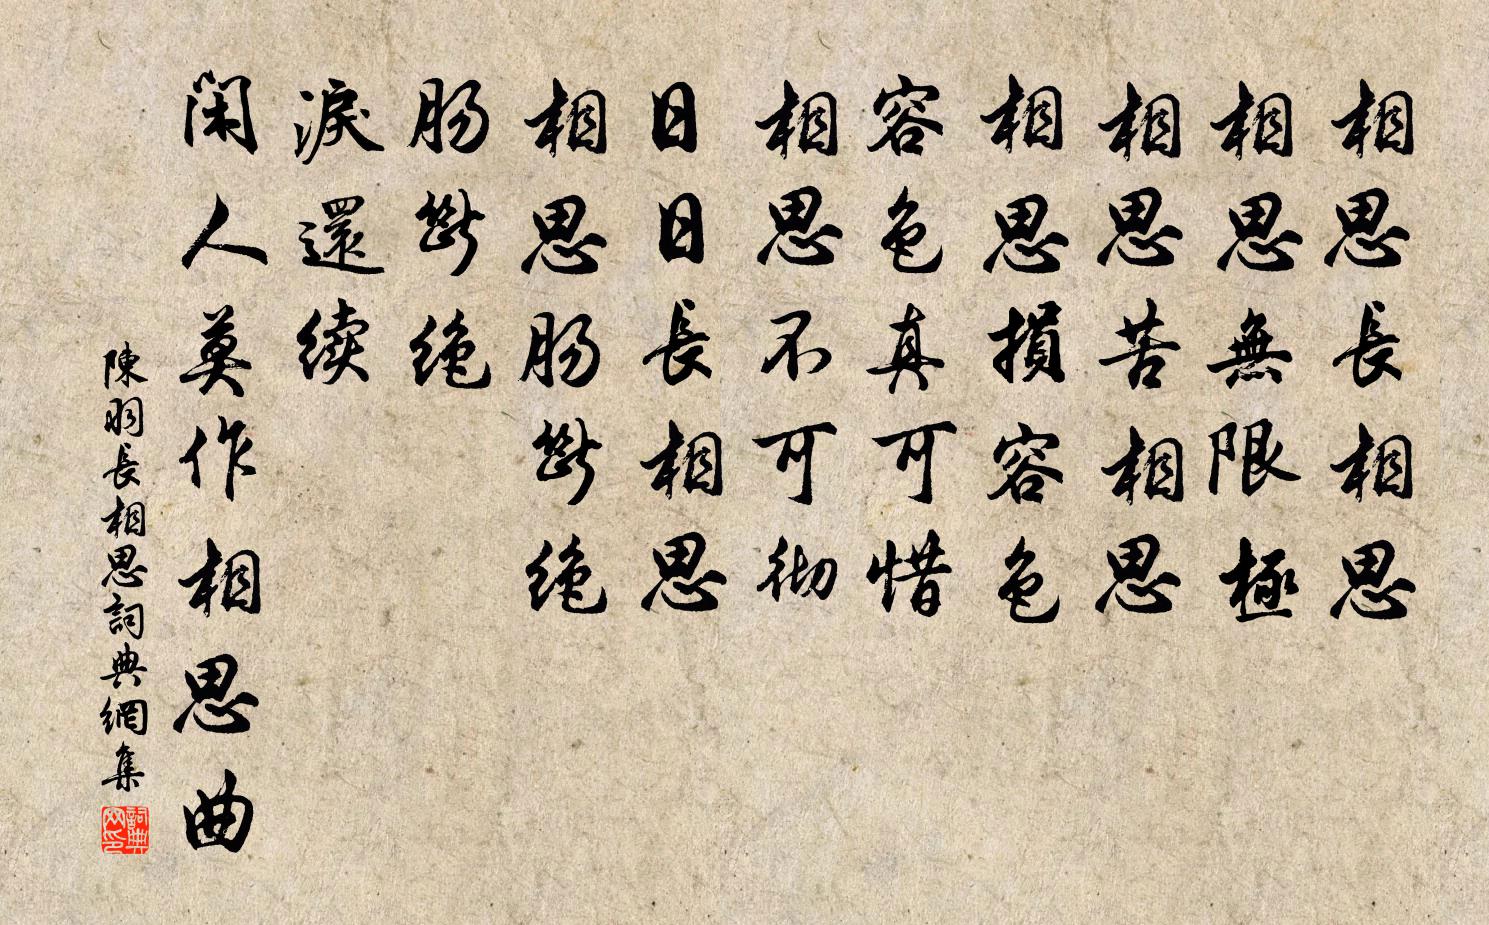 相思長相思
相思無限極
相思苦相思
相思損容色
容色真可惜
相思不可徹
日日長相思
相思腸斷絶
腸斷絶
淚還續
閑人莫作相思曲
陳羽長相思詞典網集
詞典网印